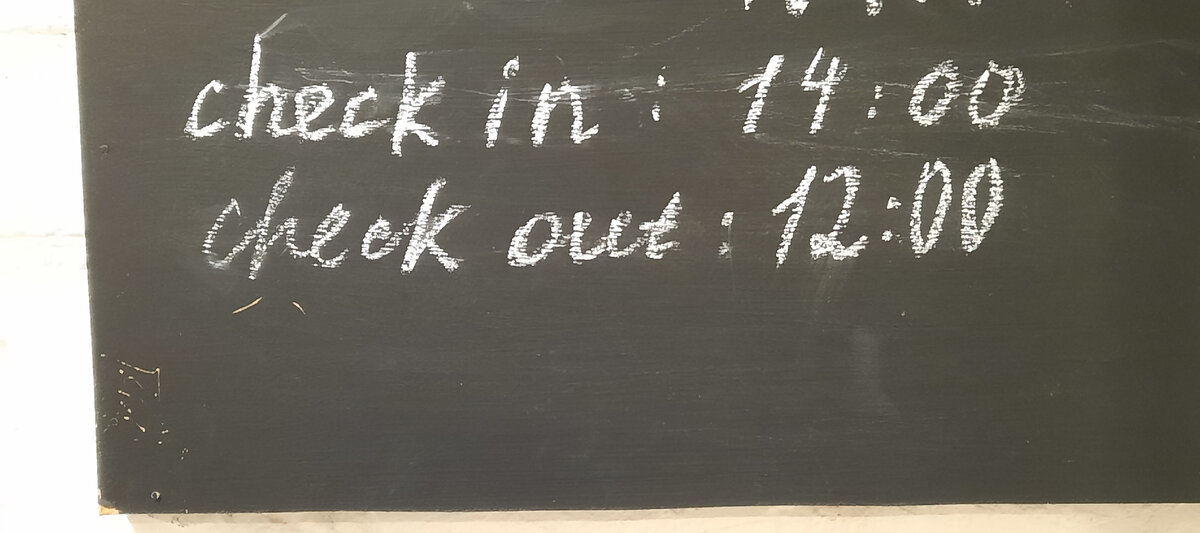 check in : 14:00
check out : 12:00